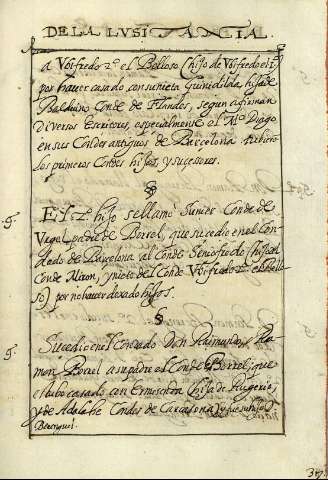 DE LA LVSITANCIA.
a Vvifredo 2º el Belloso (hijo de Vvifredo el 1º
por hauer casado con su nieta Guinidilda hija de
Balduino Conde de Flandes, segun afirman
Diversos Escritores, especialmente el Mº Diago
en sus Condes antiguos de Barcelona tubieron
los primeros Condes hijos, y sucesores.
§
El 2º hijo se llamo Sunier Conde de
Vrgel padre de Borrel, que sucedio en el Con
dado de Barcelona al Conde Seniofredo (hijo del
Conde Miron, y nieto del Conde Vvifredo 2º el Bello
so) por no hauer dexado hijos.
§
Sucedio en el Condado Don Raimundo, Ra
mon Borel a su padre el Conde Borrel, que
estubo casado con Ermesenda (hija de Rugerio,
y de Adelahe Condes de Carcasona) y su hijo
Berenguel